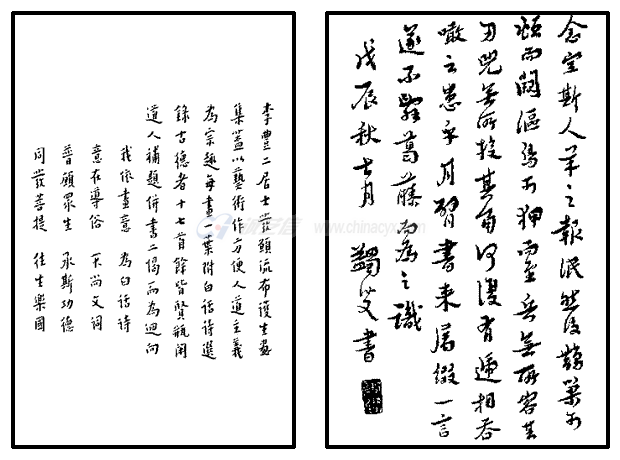 念空斯人羊之報泯然後鵲巢可
頫而闚漚鳥可狎而至兵無所容其
刃兕無所投其角何復有遞相吞
噉之患乎月臂書來屬綴一言
遂不辭葛藤而為之識
戊辰秋七月 蠲叟書
李豐二居士發願流布護生畫
集蓋以藝術作方便人道主義
為宗趣每畫一葉附白話詩選
錄古德者十七首餘皆賢瓶閒
道人補題併書二偈而為迴向
我依畫意 為白話詩
意在導俗 不尚文詞
普願眾生 承斯功德
同發菩提 往生樂國